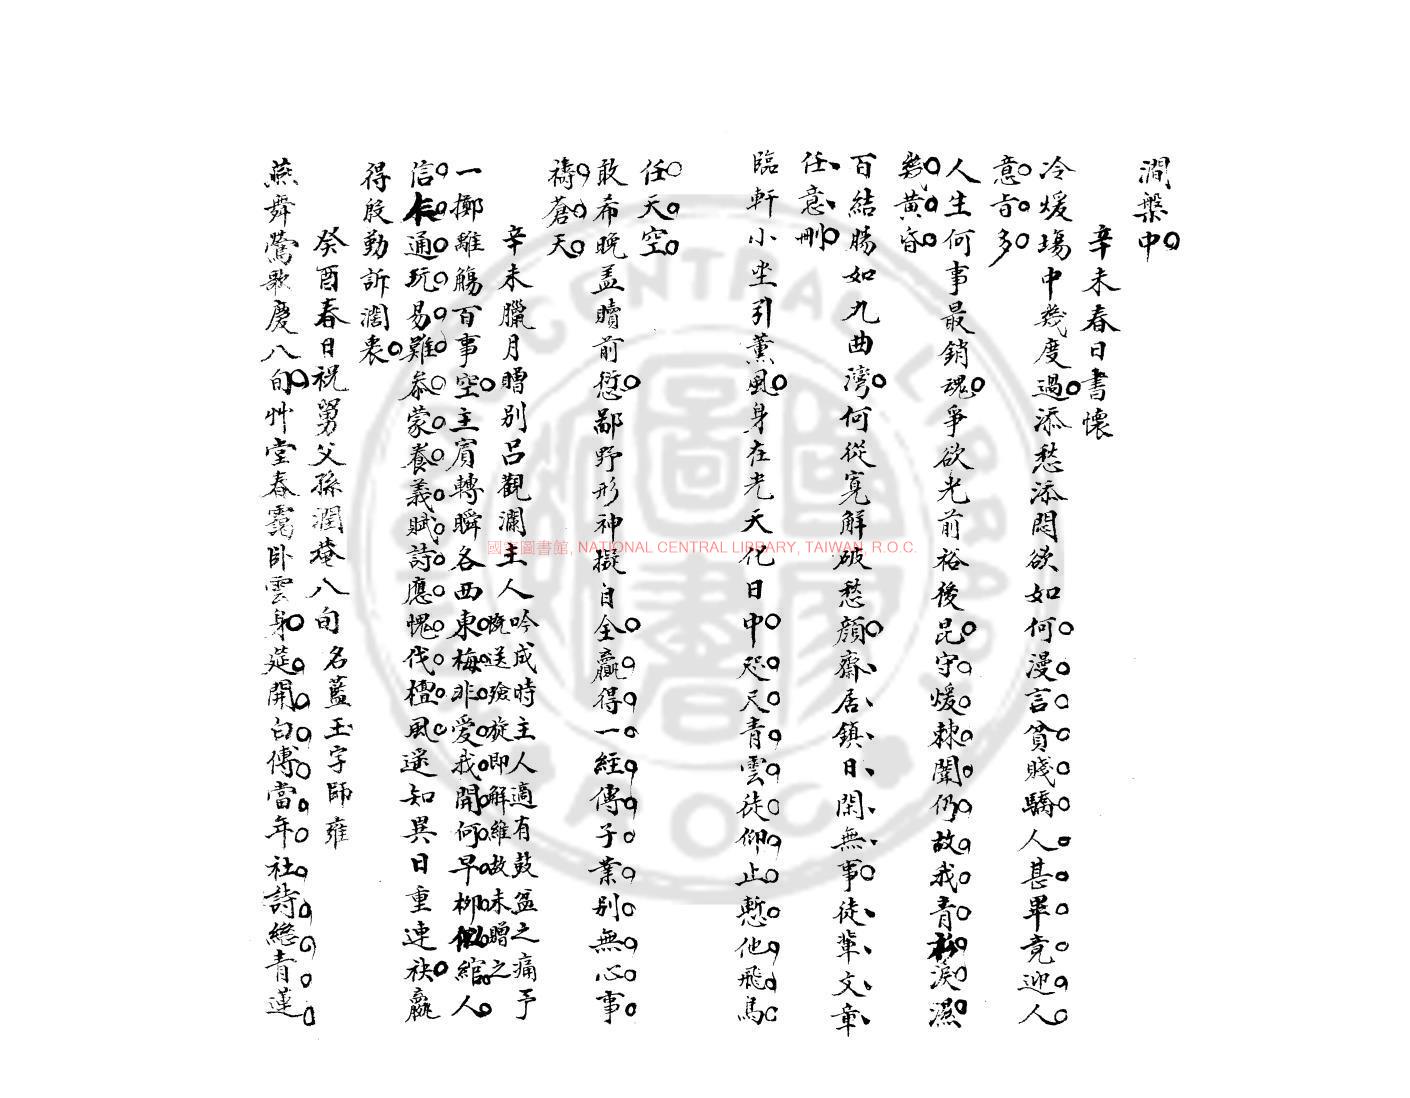 澗槃中
辛未春日書懷
冷煖塲中幾度過添愁添悶欲如何漫言貧賤驕人甚畢竟迎人
意㫖多
人生何事最銷魂爭欲光前裕後昆守煖棘闈仍故我青衫淚濕
幾黃昏
百結腸如九曲灣何從寬解破愁顏齋居鎮日閑無事徒輩文章
任意刪
臨軒小坐引薰風身在光天化日中咫尺青雲徒仰止慙他飛鳥
任天空
敢希晚盖贖前愆鄙野形神擬自全贏得一經傳子業別無心事
禱蒼天
辛未臘月贈別呂觀瀾主人吟成時主人適有鼓盆之痛予
既送殮旋即解維故未贈之
一擲離觴百事空主賓轉瞬各西東梅非愛我開何早柳似綰人
信未通玩易難叅蒙養義賦詩應愧伐檀風遥知異日重連袂贏
得殷勤訴濶衷
癸酉春日祝舅父孫潤菴八旬名藍玉字師雍
燕舞鶯歌慶八旬艸堂春靄卧雲身筵開白傅當年社詩繼青蓮
國家圖書館, NATIONAL CENTRAL LIBRARY, TAIWAN, R.O.C.